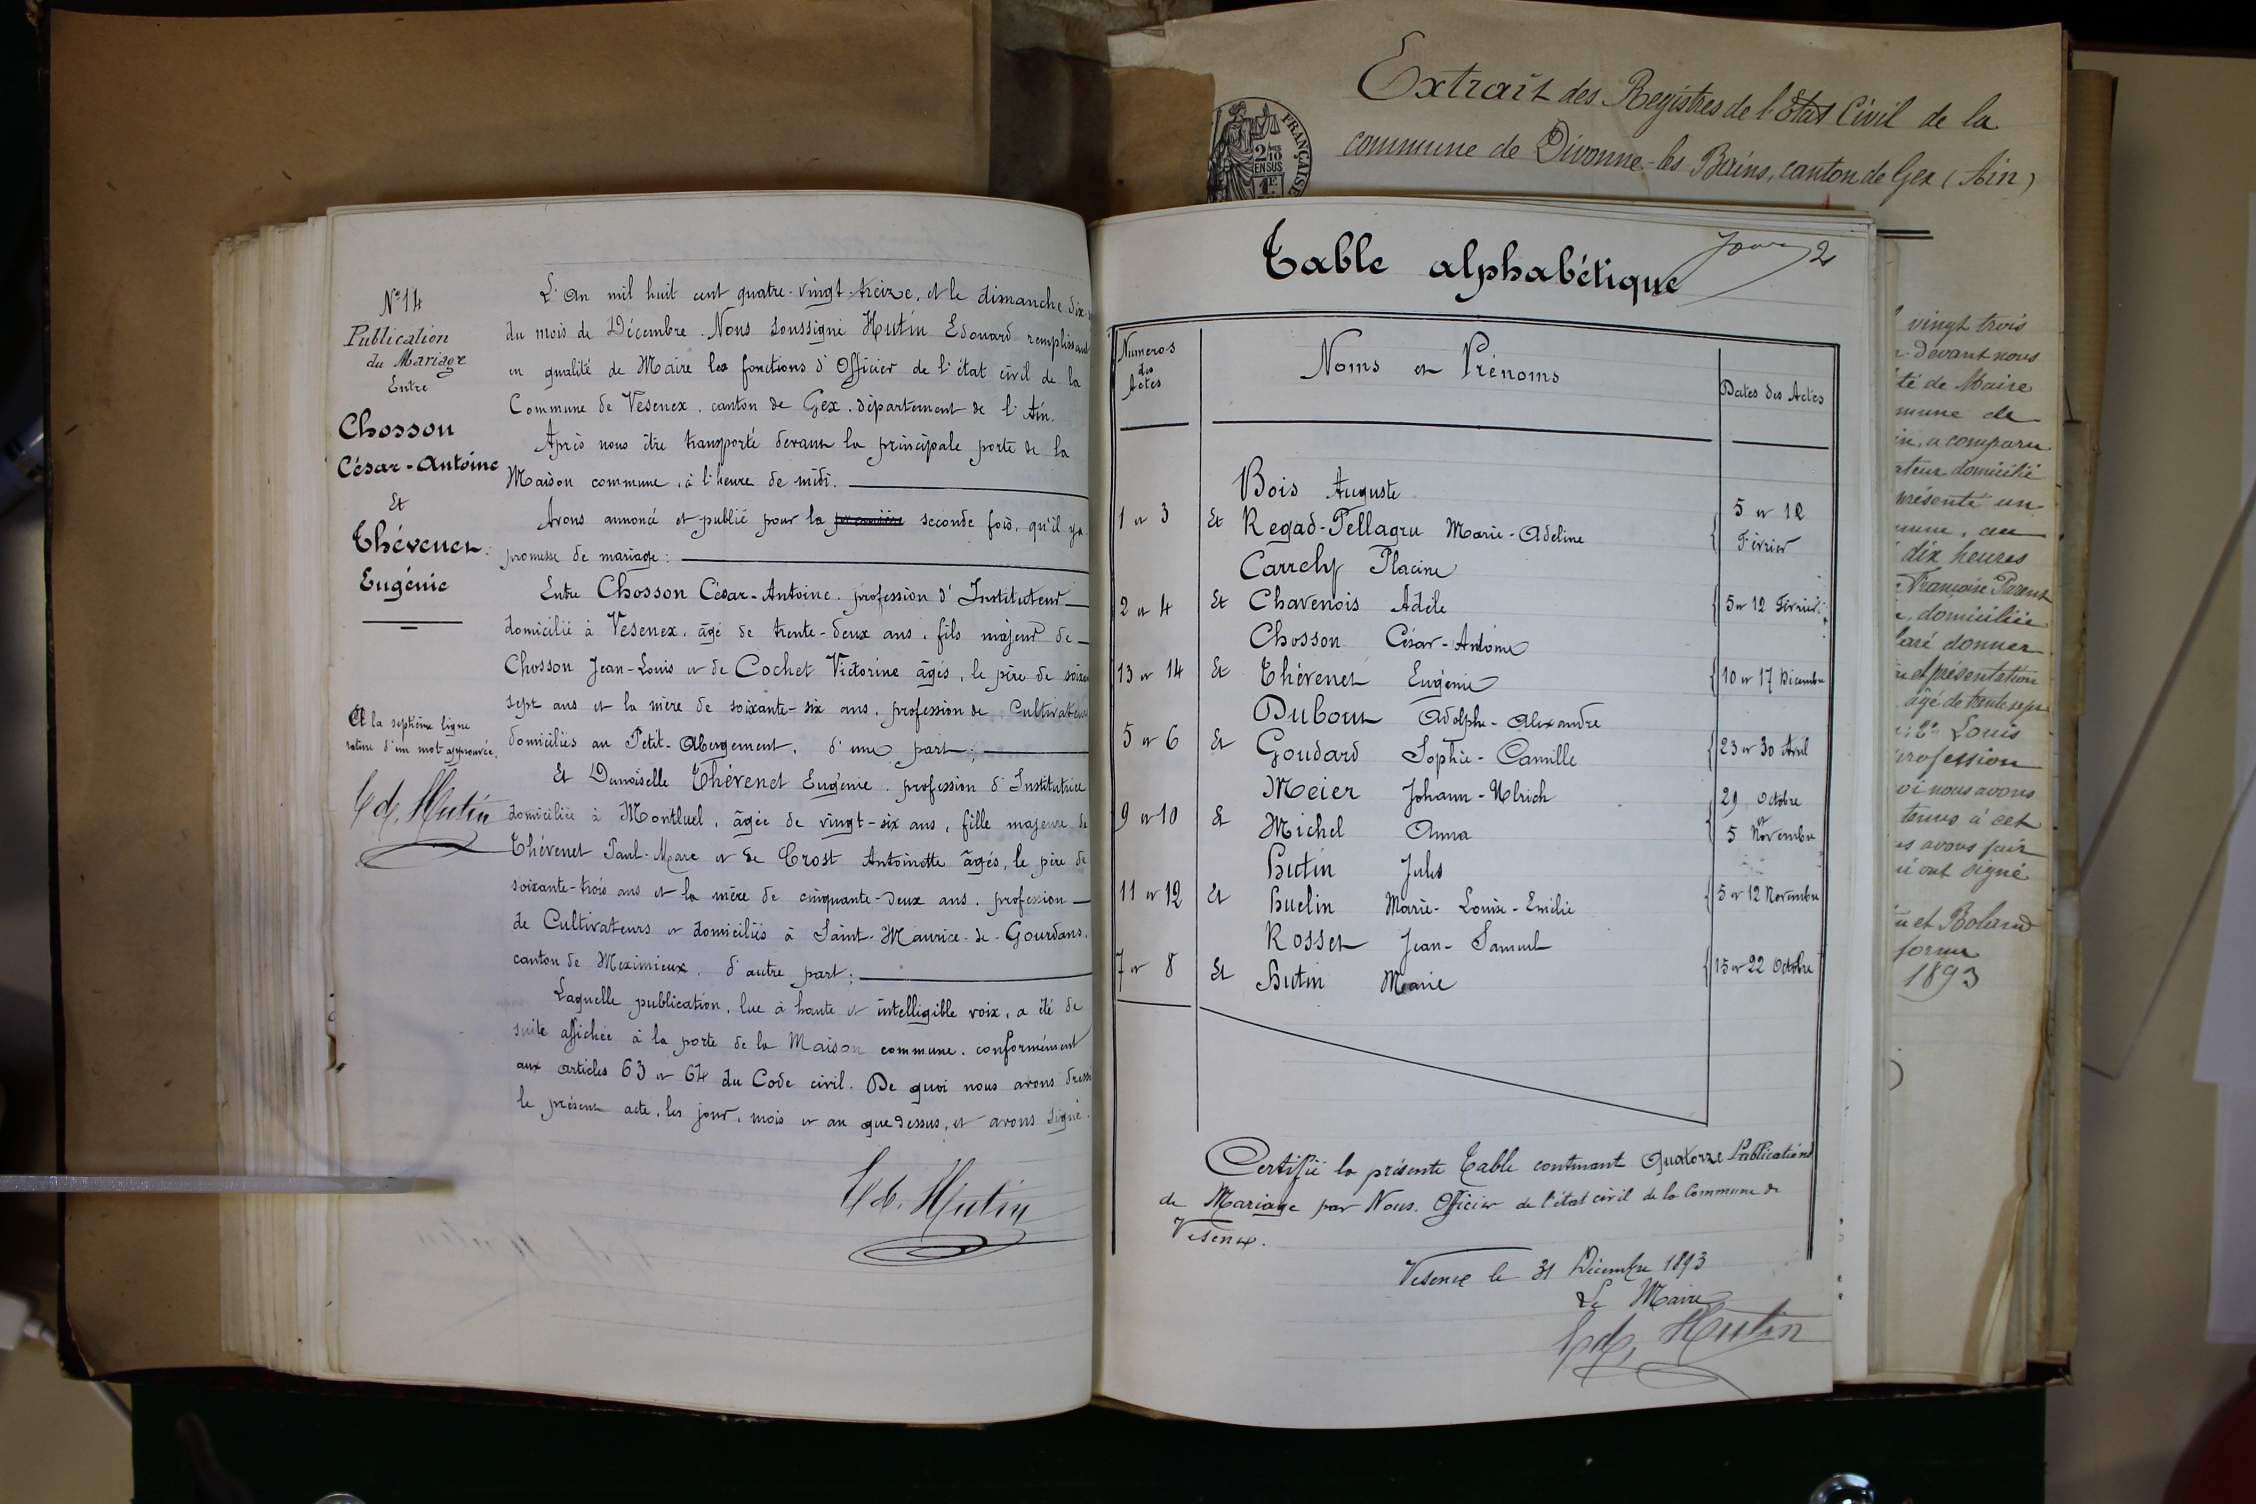 Extrait des Registres de l'Etat Civil de la
commune de Divonne-les-Bains, canton de Gex (Ain)
FRANÇAISE
2 10
EN SUS
N° 14
Publication
du Mariage
Entre
Chosson
César-Antoine
Et
Thévenet
Eugénie
A la septième ligne
rature d'un mot approuvée.
Ed. Hutin
L'An mil huit cent quatre-vingt-treize, et le dimanche dix
du mois de Décembre. Nous soussigné Hutin Edouard remplissant
en qualité de Maire les fonctions d'Officier de l'état civil de la
Commune de Vesenex, canton de Gex, département de l'Ain.
Après nous être transporté devant la principale porte de la
Maison commune, à l'heure de midi.
Avons annoncé et publié pour la première seconde fois, qu'il y a
promesse de mariage :
Entre Chosson César-Antoine, profession d'Instituteur
domicilié à Vesenex, âgé de trente-deux ans, fils majeur de
Chosson Jean-Louis et de Cochet Victorine âgés, le père de soixan
sept ans et la mère de soixante-six ans, profession de Cultivateurs
domiciliés au Petit-Abergement, d'une part ;
Et Demoiselle Thévenet Eugénie, profession d'Institutrice
domiciliée à Montluel, âgée de vingt-six ans, fille majeure de
Thévenet Paul-Marc et de Crost Antoinette âgés, le père de
soixante-trois ans et la mère de cinquante-deux ans, profession
de Cultivateurs et domiciliés à Saint-Maurice-de-Gourdans,
canton de Meximieux, d'autre part ;
Laquelle publication, lue à haute et intelligible voix, a été de
suite affichée à la porte de la Maison commune, conformément
aux articles 63 et 64 du Code civil. De quoi nous avons dressé
le présent acte, les jour, mois et an que dessus, et avons signé.
Ed. Hutin
Table alphabétique
2
Numéros des Actes
Noms et Prénoms
Dates des Actes
Bois Auguste
1 et 3 Et Regad-Pellagru Marie-Adeline 5 et 12 Février
Carrely Placine
2 et 4 Et Chavenois Adèle 5 et 12 Février
Chosson César-Antoine
13 et 14 Et Thévenet Eugénie 10 et 17 Décembre
Dubout Adolphe-Alexandre
5 et 6 Et Goudard Sophie-Camille 23 et 30 Avril
Meier Johann-Ulrich
9 et 10 Et Michel Anna 29 Octobre et 5 Novembre
Hutin Jules
11 et 12 Et Huelin Marie-Louise-Emélie 5 et 12 Novembre
Rosset Jean-Samuel
7 et 8 Et Hutin Marie 15 et 22 Octobre
Certifié la présente Table contenant Quatorze Publications
de Mariage par Nous, Officier de l'état civil de la Commune de
Vesenex.
Vesenex le 31 Décembre 1893
Le Maire
Ed. Hutin
vingt trois
devant nous
té de Maire
mune de
in, a comparu
ateur domicilié
présenté un
mune, au
dix heures
Françoise Parent
, domiciliée
laré donner
et présentation
âgé de trente sept
Louis
profession
oi nous avons
tenus à cet
avons fait
ont signé
et Boland
forme
1893